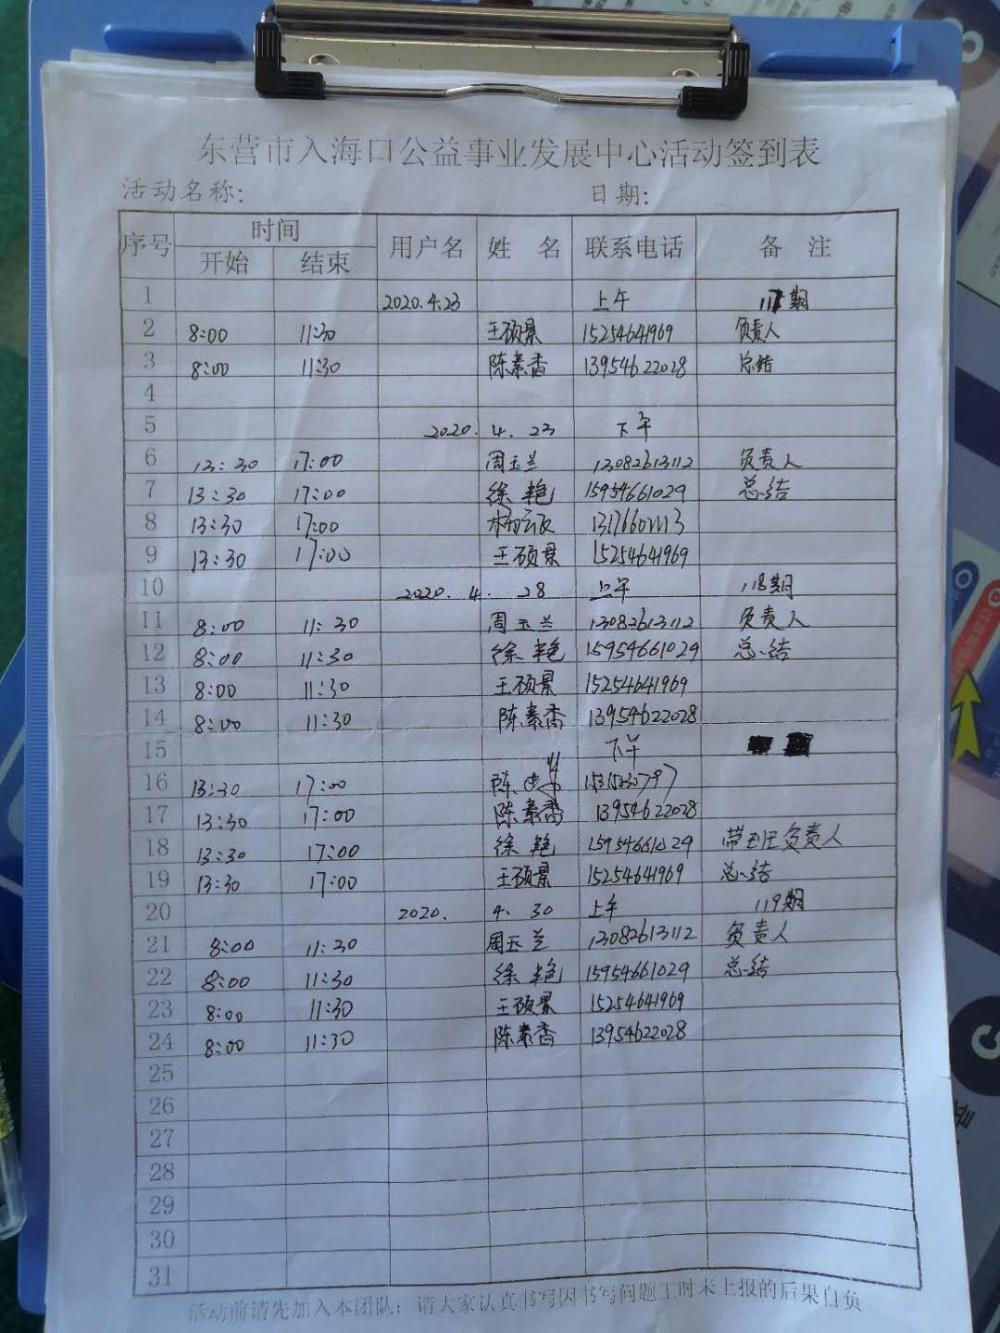 东营市入海口公益事业发展中心活动签到表
活动名称: 日期:
序号 时间 用户名 姓 名 联系电话 备 注
开始 结束
1 2020.4.23 上午 117期
2 8:00 11:30 王硕景 15254641969 负责人
3 8:00 11:30 陈素香 13954622028 总结
4
5 2020. 4. 23 下午
6 13:30 17:00 周玉兰 13082613112 负责人
7 13:30 17:00 徐艳 15954661029 总结
8 13:30 17:00
9 13:30 17:00 王硕景 15254641969
10 2020. 4. 28 上午 118期
11 8:00 11:30 周玉兰 13082613112 负责人
12 8:00 11:30 徐艳 15954661029 总结
13 8:00 11:30 王硕景 15254641969
14 8:00 11:30 陈素香 13954622028
15 下午
16 13:30 17:00 陈
17 13:30 17:00 陈素香 13954622028
18 13:30 17:00 徐艳 15954661029 带班负责人
19 13:30 17:00 王硕景 15254641969 总结
20 2020. 4. 30 上午 119期
21 8:00 11:30 周玉兰 13082613112 负责人
22 8:00 11:30 徐艳 15954661029 总结
23 8:00 11:30 王硕景 15254641969
24 8:00 11:30 陈素香 13954622028
25
26
27
28
29
30
31
活动前请先加入本团队: 请大家认真书写因书写问题工时未上报的后果自负